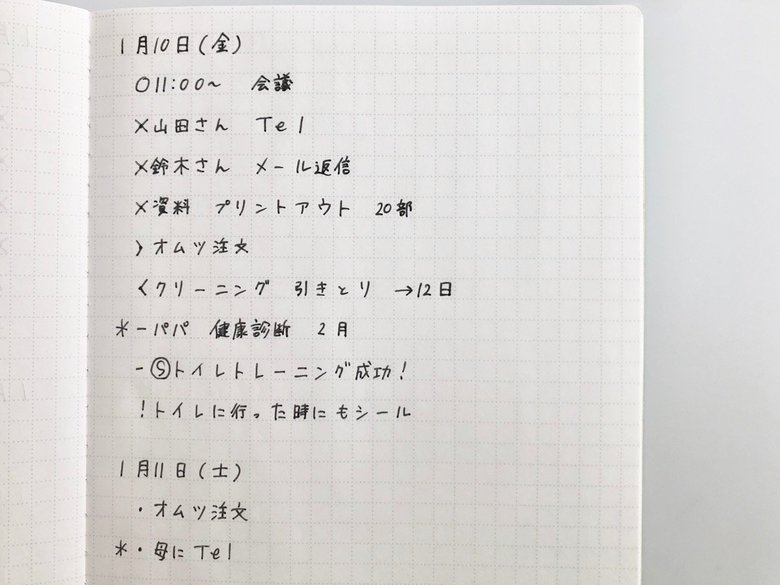 1月10日(金)
○11:00〜 会議
×山田さん Tel
×鈴木さん メール返信
×資料 プリントアウト 20部
>オムツ注文
<クリーニング 引きとり →12日
*-パパ 健康診断 2月
-Ⓢトイレトレーニング成功!
!トイレに行った時にもシール
1月11日(土)
・オムツ注文
*・母にTel